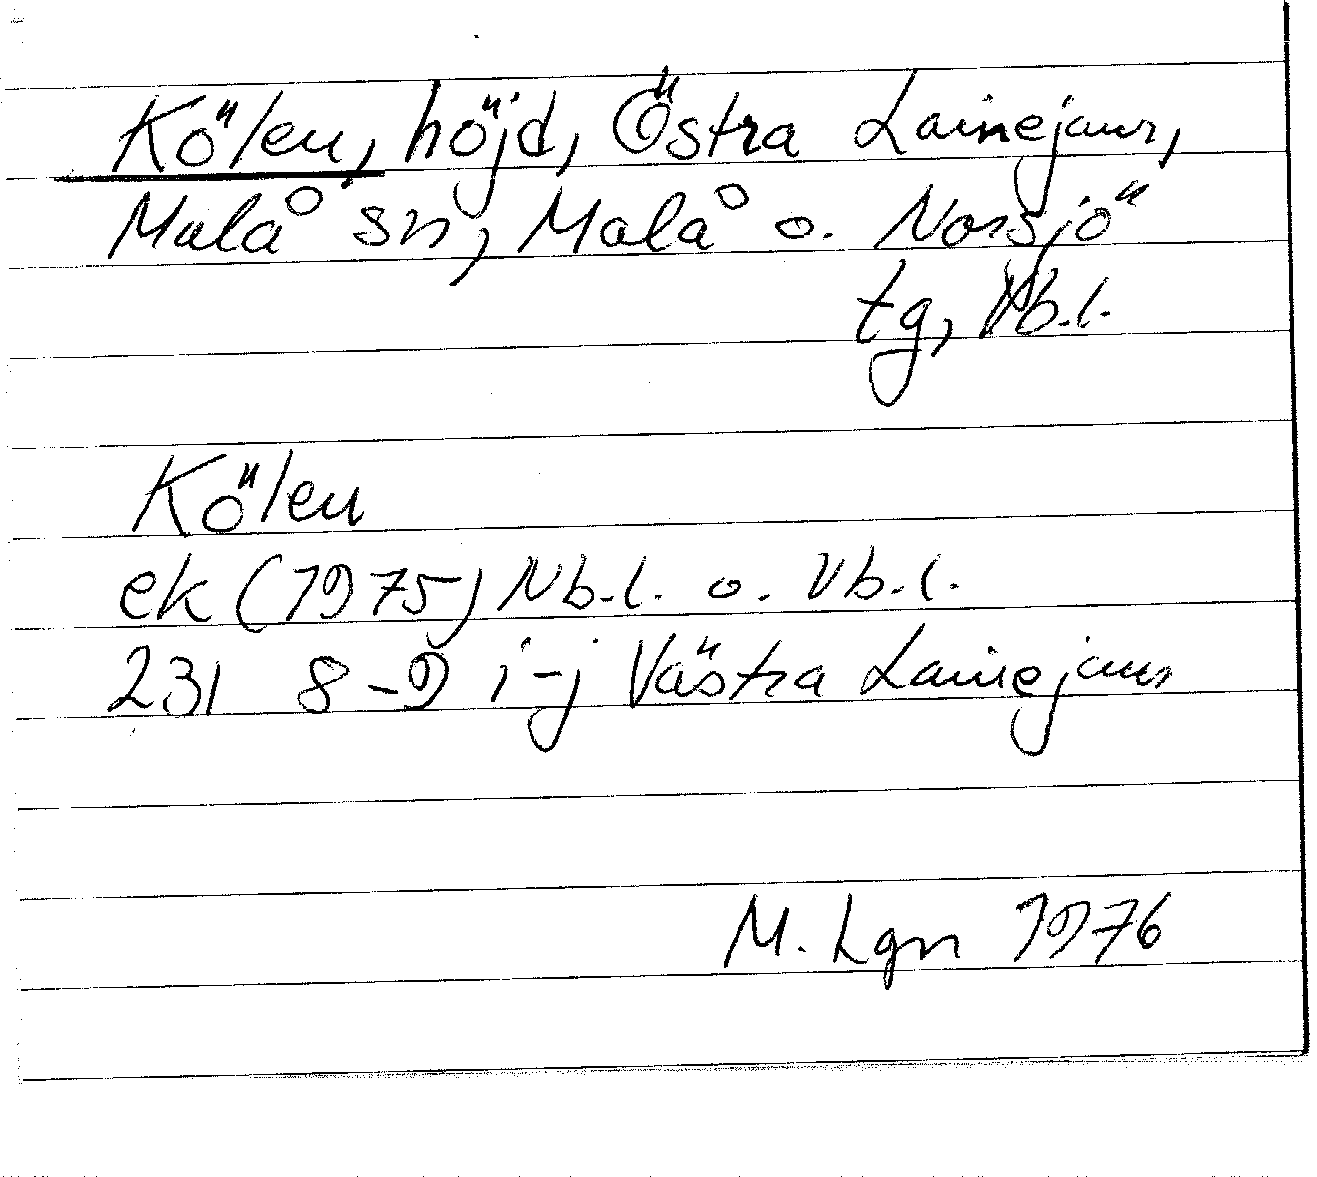 Kölen, höjd, Östra Lainejaur,
Malå sn, Malå o. Norsjö
tg, Vb.l.
Kölen
ek (1975) Nb.l. o. Vb.l.
231 8-9 i-j Västra Lainejaur
M. Lgn 1976